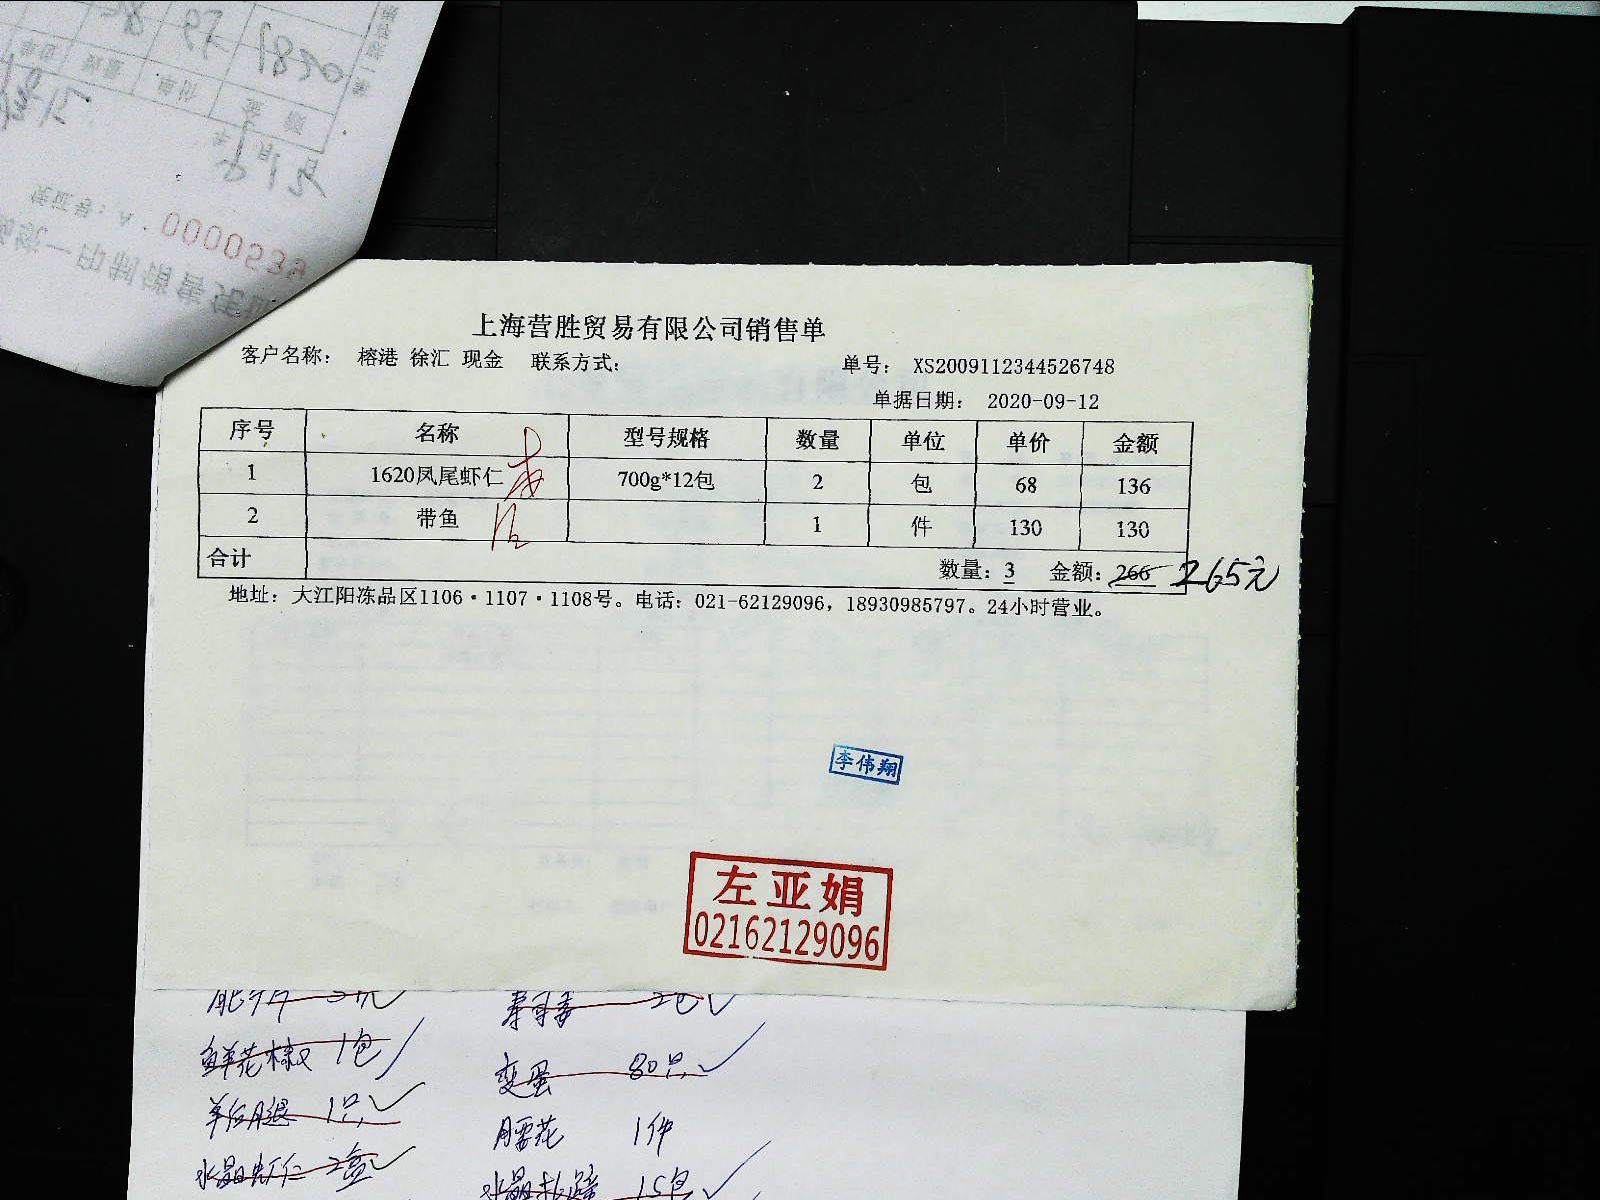 0000539
上海营胜贸易有限公司销售单
客户名称： 榕港 徐汇 现金 联系方式： 单号： XS2009112344526748
单据日期： 2020-09-12
序号 名称 型号规格 数量 单位 单价 金额
1 1620凤尾虾仁 700g*12包 2 包 68 136
2 带鱼 1 件 130 130
合计 数量：3 金额：266 265元
地址： 大江阳冻品区1106·1107·1108号。电话：021-62129096，18930985797。24小时营业。
李伟翔
左亚娟
02162129096
寿司姜 2包
鲜花椒 1包 变蛋 80只
羊后腿 1只 腰花 1件
水晶虾仁 2盒 15包